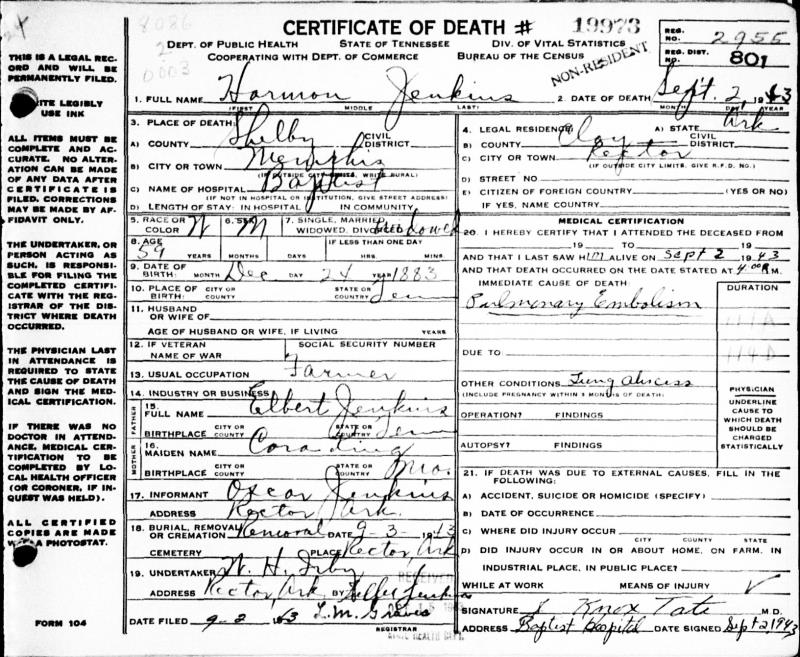 CERTIFICATE OF DEATH # 19973
DEPT. OF PUBLIC HEALTH STATE OF TENNESSEE DIV. OF VITAL STATISTICS
COOPERATING WITH DEPT. OF COMMERCE BUREAU OF THE CENSUS
NON-RESIDENT
REG. NO. 2955
REG. DIST. 801
THIS IS A LEGAL RECORD AND WILL BE PERMANENTLY FILED.
ITE LEGIBLY
USE INK
ALL ITEMS MUST BE COMPLETE AND ACCURATE. NO ALTERATION CAN BE MADE OF ANY DATA AFTER CERTIFICATE IS FILED. CORRECTIONS MAY BE MADE BY AFFIDAVIT ONLY.
THE UNDERTAKER, OR PERSON ACTING AS SUCH, IS RESPONSIBLE FOR FILING THE COMPLETED CERTIFICATE WITH THE REGISTRAR OF THE DISTRICT WHERE DEATH OCCURRED.
THE PHYSICIAN LAST IN ATTENDANCE IS REQUIRED TO STATE THE CAUSE OF DEATH AND SIGN THE MEDICAL CERTIFICATION.
IF THERE WAS NO DOCTOR IN ATTENDANCE, MEDICAL CERTIFICATION TO BE COMPLETED BY LOCAL HEALTH OFFICER (OR CORONER, IF INQUEST WAS HELD).
ALL CERTIFIED COPIES ARE MADE A PHOTOSTAT.
FORM 104
1. FULL NAME Harmon Jenkins
(FIRST) MIDDLE LAST)
2. DATE OF DEATH Sept. 2, 1943
MONTH DAY YEAR
3. PLACE OF DEATH:
A) COUNTY Shelby CIVIL DISTRICT
B) CITY OR TOWN Memphis
(IF OUTSIDE CITY LIMITS, WRITE RURAL)
C) NAME OF HOSPITAL Baptist
(IF NOT IN HOSPITAL OR INSTITUTION, GIVE STREET ADDRESS)
D) LENGTH OF STAY: IN HOSPITAL IN COMMUNITY
4. LEGAL RESIDENCE: A) STATE Ark
B) COUNTY Clay CIVIL DISTRICT
C) CITY OR TOWN Rector
(IF OUTSIDE CITY LIMITS, GIVE R.F.D. NO.)
D) STREET NO
E) CITIZEN OF FOREIGN COUNTRY (YES OR NO)
IF YES, NAME COUNTRY
5. RACE OR COLOR W 6. SEX M 7. SINGLE, MARRIED, WIDOWED, DIVORCED Widowed
8. AGE 59 YEARS MONTHS DAYS IF LESS THAN ONE DAY HRS. MINS.
9. DATE OF BIRTH: MONTH Dec DAY 24 YEAR 1883
10. PLACE OF BIRTH: CITY OR COUNTY STATE OR COUNTRY Tenn
11. HUSBAND OR WIFE OF
AGE OF HUSBAND OR WIFE, IF LIVING YEARS
12. IF VETERAN NAME OF WAR SOCIAL SECURITY NUMBER
13. USUAL OCCUPATION Farmer
14. INDUSTRY OR BUSINESS
FATHER 15. FULL NAME Elbert Jenkins
BIRTHPLACE CITY OR COUNTY STATE OR COUNTRY Tenn
MOTHER 16. MAIDEN NAME Cora
BIRTHPLACE CITY OR COUNTY STATE OR COUNTRY Mo.
17. INFORMANT Oscar Jenkins
ADDRESS Rector Ark.
18. BURIAL, REMOVAL OR CREMATION Removal DATE 9-3-1943
CEMETERY PLACE Rector, Ark
19. UNDERTAKER W. H. Irby
ADDRESS Rector, Ark BY
DATE FILED 9-2 43 L.M. Graves
REGISTRAR
RECEIVED
STATE HEALTH DEPT.
MEDICAL CERTIFICATION
20. I HEREBY CERTIFY THAT I ATTENDED THE DECEASED FROM
19 TO 19
AND THAT I LAST SAW HIM ALIVE ON Sept 2 1943
AND THAT DEATH OCCURRED ON THE DATE STATED AT 4:00 P.M.
IMMEDIATE CAUSE OF DEATH
Pulmonary Embolism
DURATION
111A
114D
DUE TO:
OTHER CONDITIONS Lung abscess
(INCLUDE PREGNANCY WITHIN 3 MONTHS OF DEATH)
OPERATION? FINDINGS
AUTOPSY? FINDINGS
PHYSICIAN
UNDERLINE CAUSE TO WHICH DEATH SHOULD BE CHARGED STATISTICALLY
21. IF DEATH WAS DUE TO EXTERNAL CAUSES, FILL IN THE FOLLOWING:
A) ACCIDENT, SUICIDE OR HOMICIDE (SPECIFY)
B) DATE OF OCCURRENCE
C) WHERE DID INJURY OCCUR
CITY COUNTY STATE
D) DID INJURY OCCUR IN OR ABOUT HOME, ON FARM, IN INDUSTRIAL PLACE, IN PUBLIC PLACE?
WHILE AT WORK MEANS OF INJURY
SIGNATURE J Knox Tate M.D.
ADDRESS Baptist Hospital DATE SIGNED Sept 2, 1943